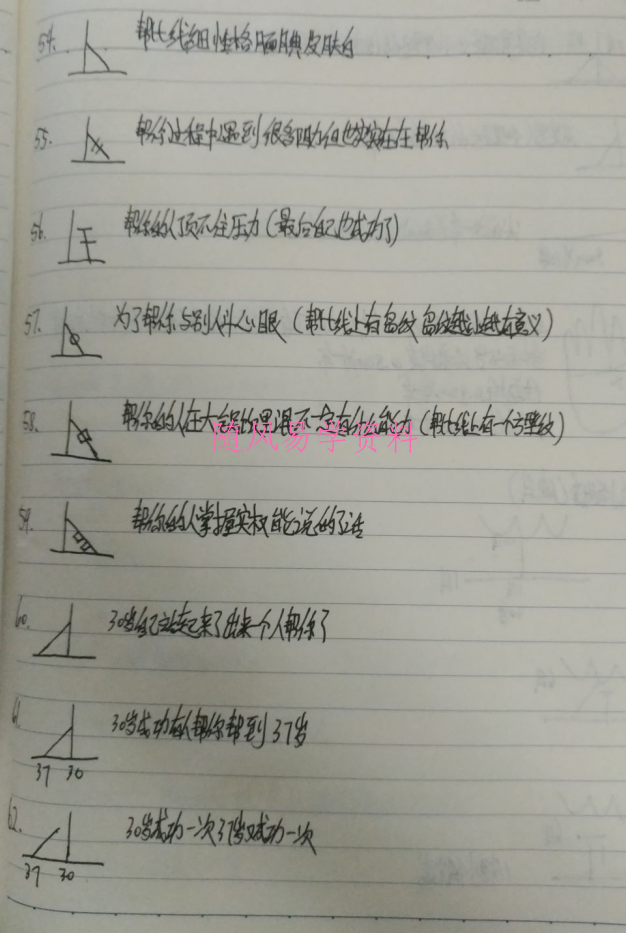 54. 帮比线细 性格腼腆 皮肤白
55. 帮你过程中遇到很多阻力但也实实在在帮你
56. 帮你的人顶不住压力(最后自己也成功了)
57. 为了帮你与别人斗心眼(帮比线上有岛纹 岛纹越小越有意义)
58. 帮你的人在大 有什么能力(帮比线上有一个方型纹)
随风易学资料
59. 帮你的人掌握实权能说的了话
60. 30岁自己站起来了出来个人帮你了
61. 30岁成功有人帮你帮到37岁
37 30
62. 30岁成功一次37岁又成功一次
37 30